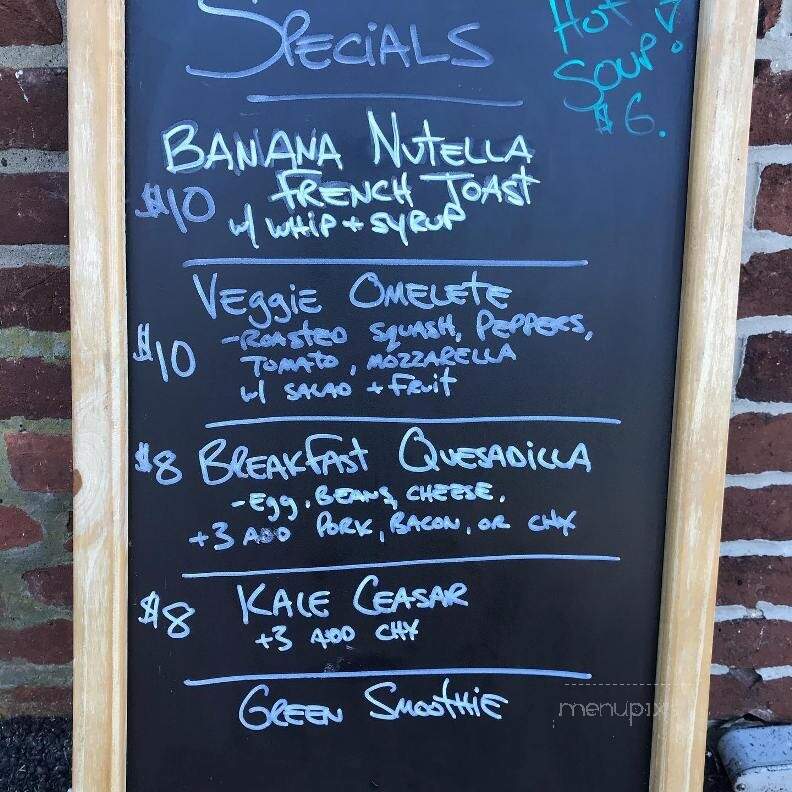 Specials
Hot
Soup!
$6.
Banana Nutella
$10 French Toast
w/ whip + syrup
Veggie Omelete
$10 -Roasted squash, peppers,
tomato, mozzarella
w/ salad + fruit
$8 Breakfast Quesadilla
-egg, beans, cheese,
+3 add pork, bacon, or chx
$8 Kale Ceasar
+3 add chx
Green Smoothie
menupix